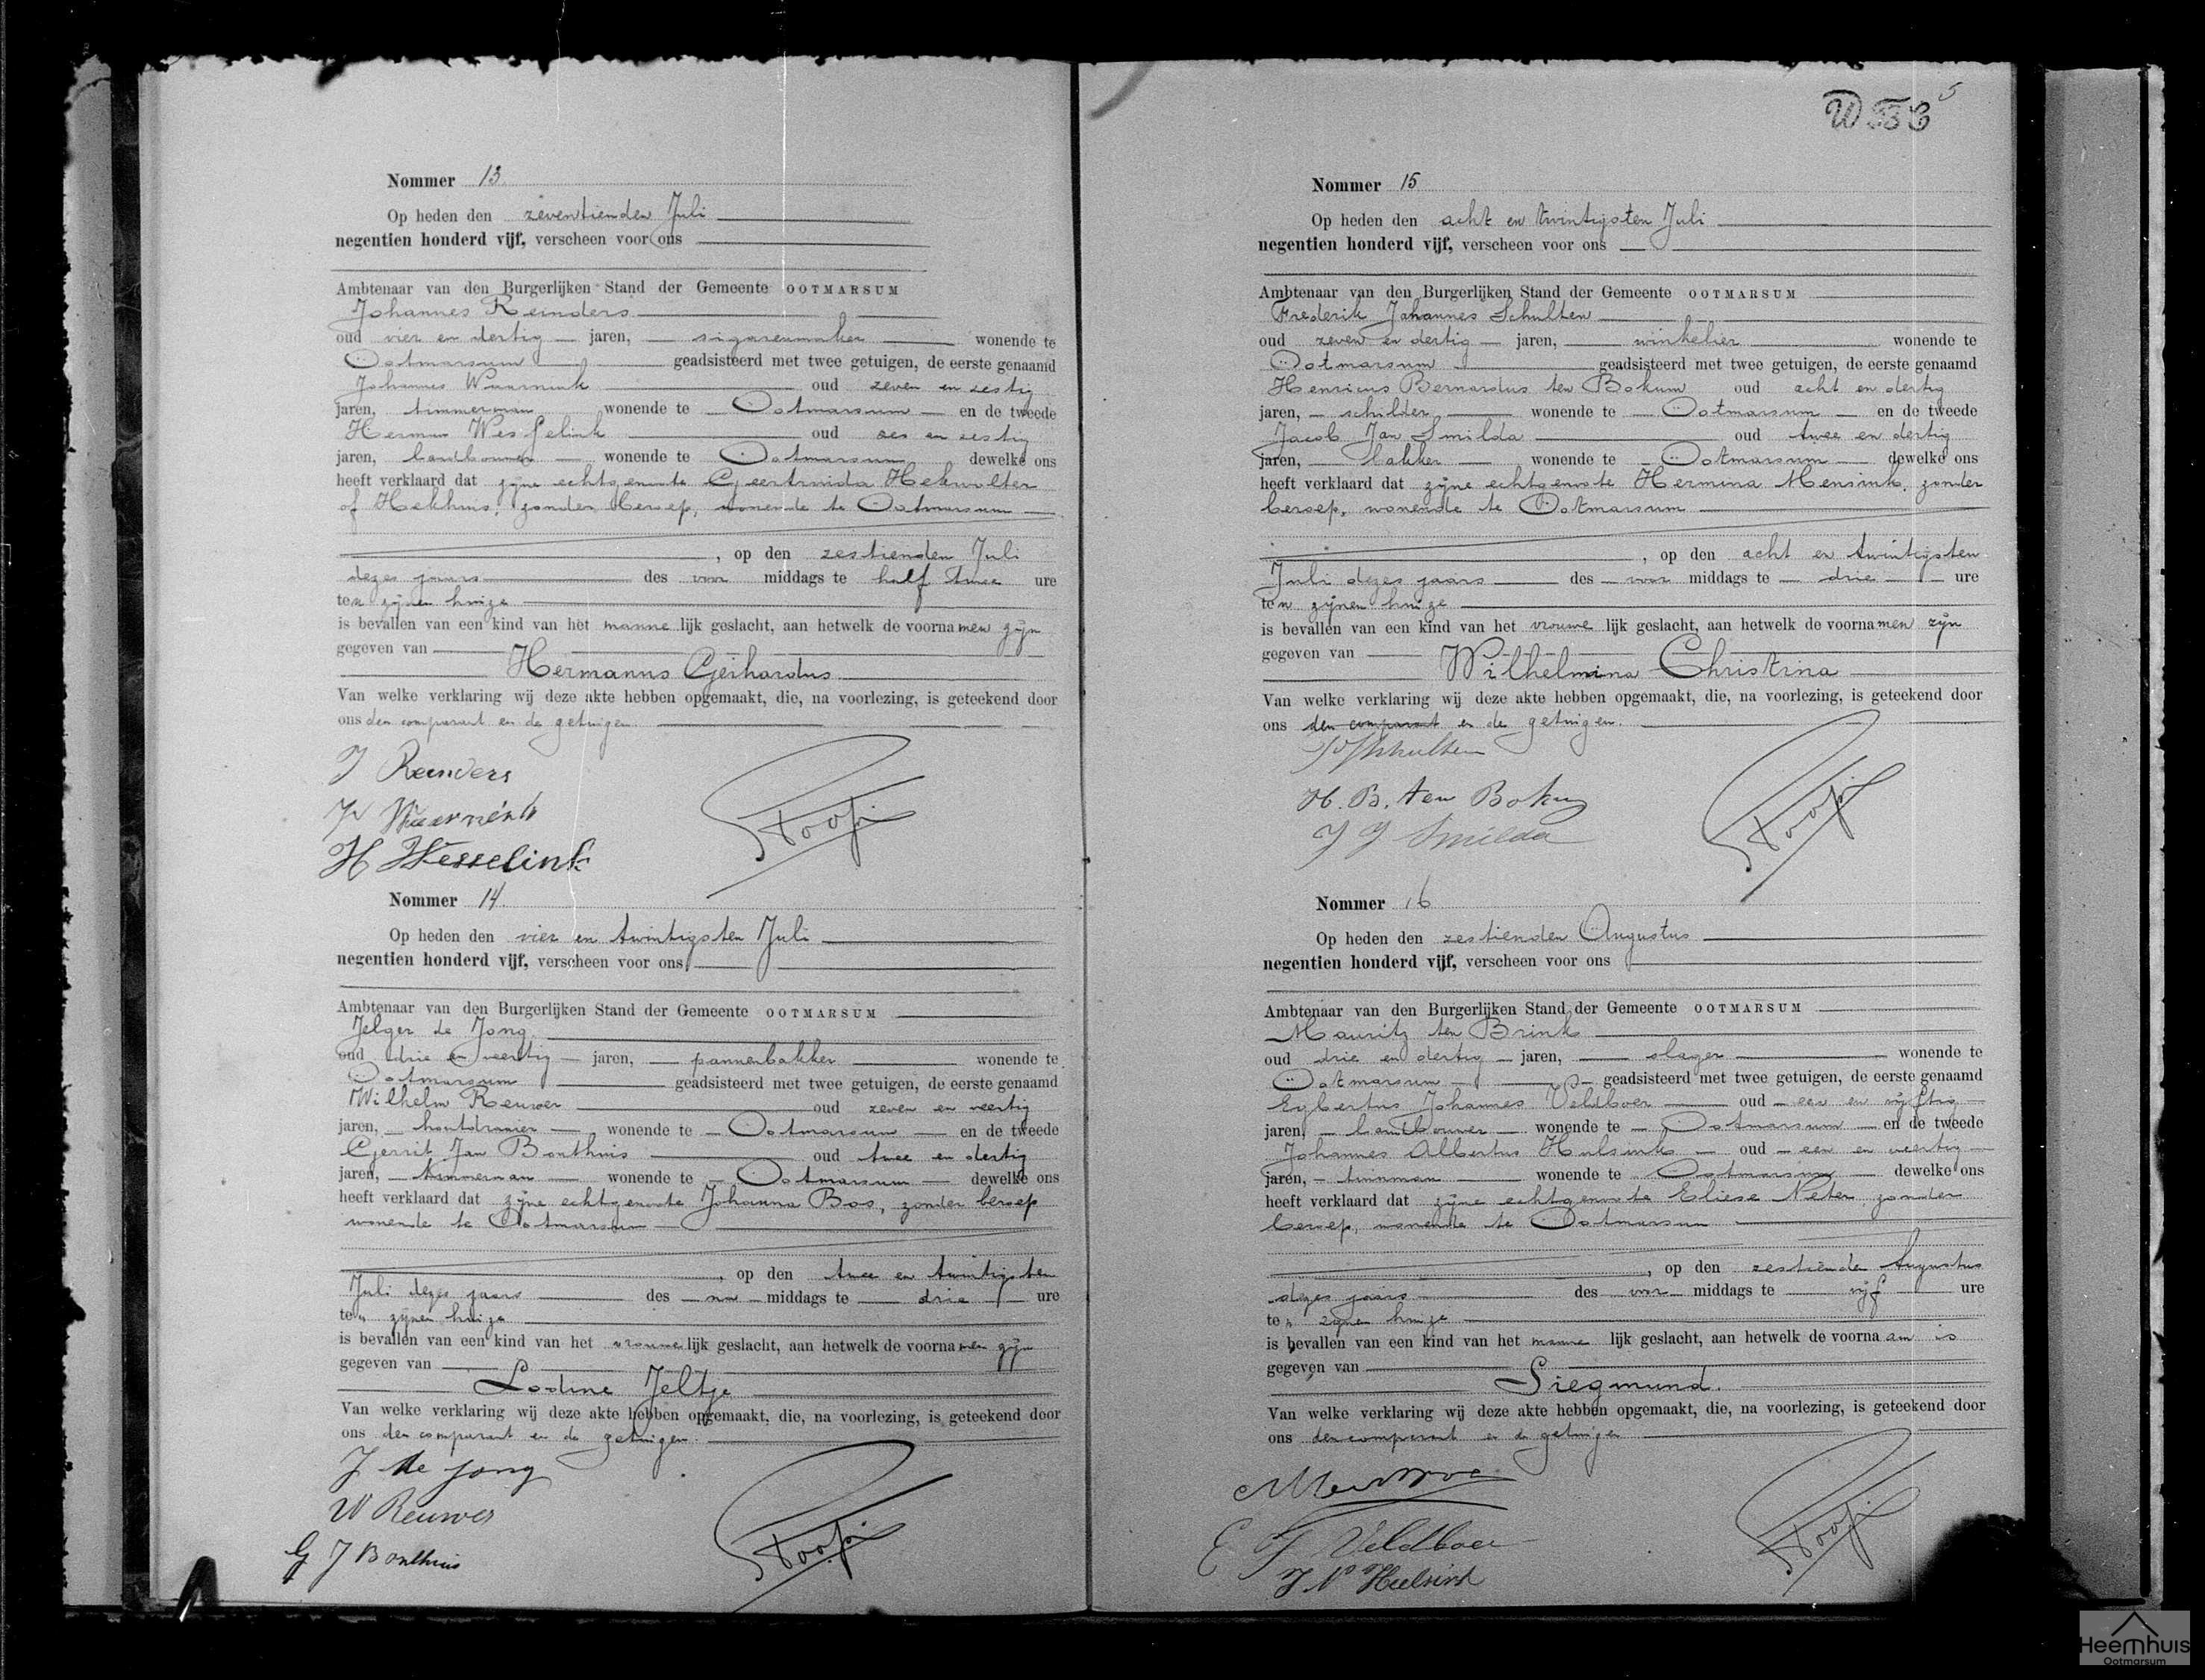 Nommer 13.
Op heden den zeventienden Juli
negentien honderd vijf, verscheen voor ons
Ambtenaar van den Burgerlijken Stand der Gemeente OOTMARSUM
Johannes Reinders
oud vier en dertig jaren, sigarenmaker wonende te
Ootmarsum geadsisteerd met twee getuigen, de eerste genaamd
Johannes Waarnink oud zeven en zestig
jaren, timmerman wonende te Ootmarsum en de tweede
Hermen Wesselink oud zes en zestig
jaren, landbouwer wonende te Ootmarsum dewelke ons
heeft verklaard dat zijne echtgenoote Geertruida Hekwolter
of Hekhuis, zonder beroep, wonende te Ootmarsum
, op den zestienden Juli
dezes jaars des voor middags te half twee ure
ten zijnen huize
is bevallen van een kind van het manne lijk geslacht, aan hetwelk de voornamen zijn
gegeven van
Hermanus Gerhardus
Van welke verklaring wij deze akte hebben opgemaakt, die, na voorlezing, is geteekend door
ons den comparant en de getuigen.
J Reinders
J Waarnink
H Wesselink
Nommer 14.
Op heden den vier en twintigsten Juli
negentien honderd vijf, verscheen voor ons
Ambtenaar van den Burgerlijken Stand der Gemeente OOTMARSUM
Jelger de Jong
oud drie en veertig jaren, pannenbakker wonende te
Ootmarsum geadsisteerd met twee getuigen, de eerste genaamd
Wilhelm Reuver oud zeven en veertig
jaren, houtdraaier wonende te Ootmarsum en de tweede
Gerrit Jan Bonthuis oud twee en dertig
jaren, timmerman wonende te Ootmarsum dewelke ons
heeft verklaard dat zijne echtgenoote Johanna Bos, zonder beroep
wonende te Ootmarsum
, op den twee en twintigsten
Juli dezes jaars des na middags te drie ure
ten zijnen huize
is bevallen van een kind van het vrouwe lijk geslacht, aan hetwelk de voornamen zijn
gegeven van
Lodine Jeltje
Van welke verklaring wij deze akte hebben opgemaakt, die, na voorlezing, is geteekend door
ons den comparant en de getuigen.
J de Jong
W Reuver
G J Bonthuis
5
Nommer 15
Op heden den acht en twintigsten Juli
negentien honderd vijf, verscheen voor ons
Ambtenaar van den Burgerlijken Stand der Gemeente OOTMARSUM
Frederik Johannes Schulten
oud zeven en dertig jaren, winkelier wonende te
Ootmarsum geadsisteerd met twee getuigen, de eerste genaamd
Henricus Bernardus ten Bokum oud acht en dertig
jaren, schilder wonende te Ootmarsum en de tweede
Jacob Jan Smilda oud twee en dertig
jaren, bakker wonende te Ootmarsum dewelke ons
heeft verklaard dat zijne echtgenoote Hermina Mensink, zonder
beroep, wonende te Ootmarsum
, op den acht en twintigsten
Juli dezes jaars des voor middags te drie ure
ten zijnen huize
is bevallen van een kind van het vrouwe lijk geslacht, aan hetwelk de voornamen zijn
gegeven van
Wilhelmina Christina
Van welke verklaring wij deze akte hebben opgemaakt, die, na voorlezing, is geteekend door
ons den comparant en de getuigen.
Schulten
H. B. ten Bokum
J J Smilda
Nommer 16
Op heden den zestienden Augustus
negentien honderd vijf, verscheen voor ons
Ambtenaar van den Burgerlijken Stand der Gemeente OOTMARSUM
Mauritz ten Brink
oud drie en dertig jaren, slager wonende te
Ootmarsum geadsisteerd met twee getuigen, de eerste genaamd
Egbertus Johannes Veldboer oud een en vijftig
jaren, landbouwer wonende te Ootmarsum en de tweede
Johannes Albertus Hulsink oud een en veertig
jaren, tuinman wonende te Ootmarsum dewelke ons
heeft verklaard dat zijne echtgenoote Eliese Neter, zonder
beroep, wonende te Ootmarsum
, op den zestienden Augustus
dezes jaars des voor middags te vijf ure
ten zijnen huize
is bevallen van een kind van het manne lijk geslacht, aan hetwelk de voornaam is
gegeven van
Siegmund.
Van welke verklaring wij deze akte hebben opgemaakt, die, na voorlezing, is geteekend door
ons den comparant en de getuigen
E J Veldboer
J A Hulsink
Heemhuis
Ootmarsum